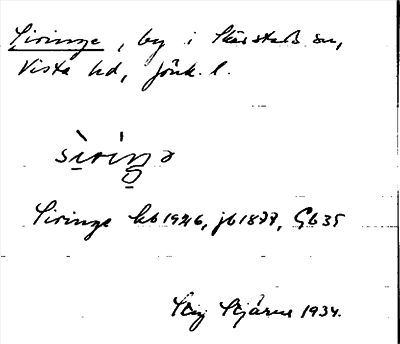 Siringe, by i Skärstads sn,
Vista hd, Jönk. l.
sìríŋə
Siringe kb 1926, jb 1877, Gb 35
Stig Bjärne 1934.